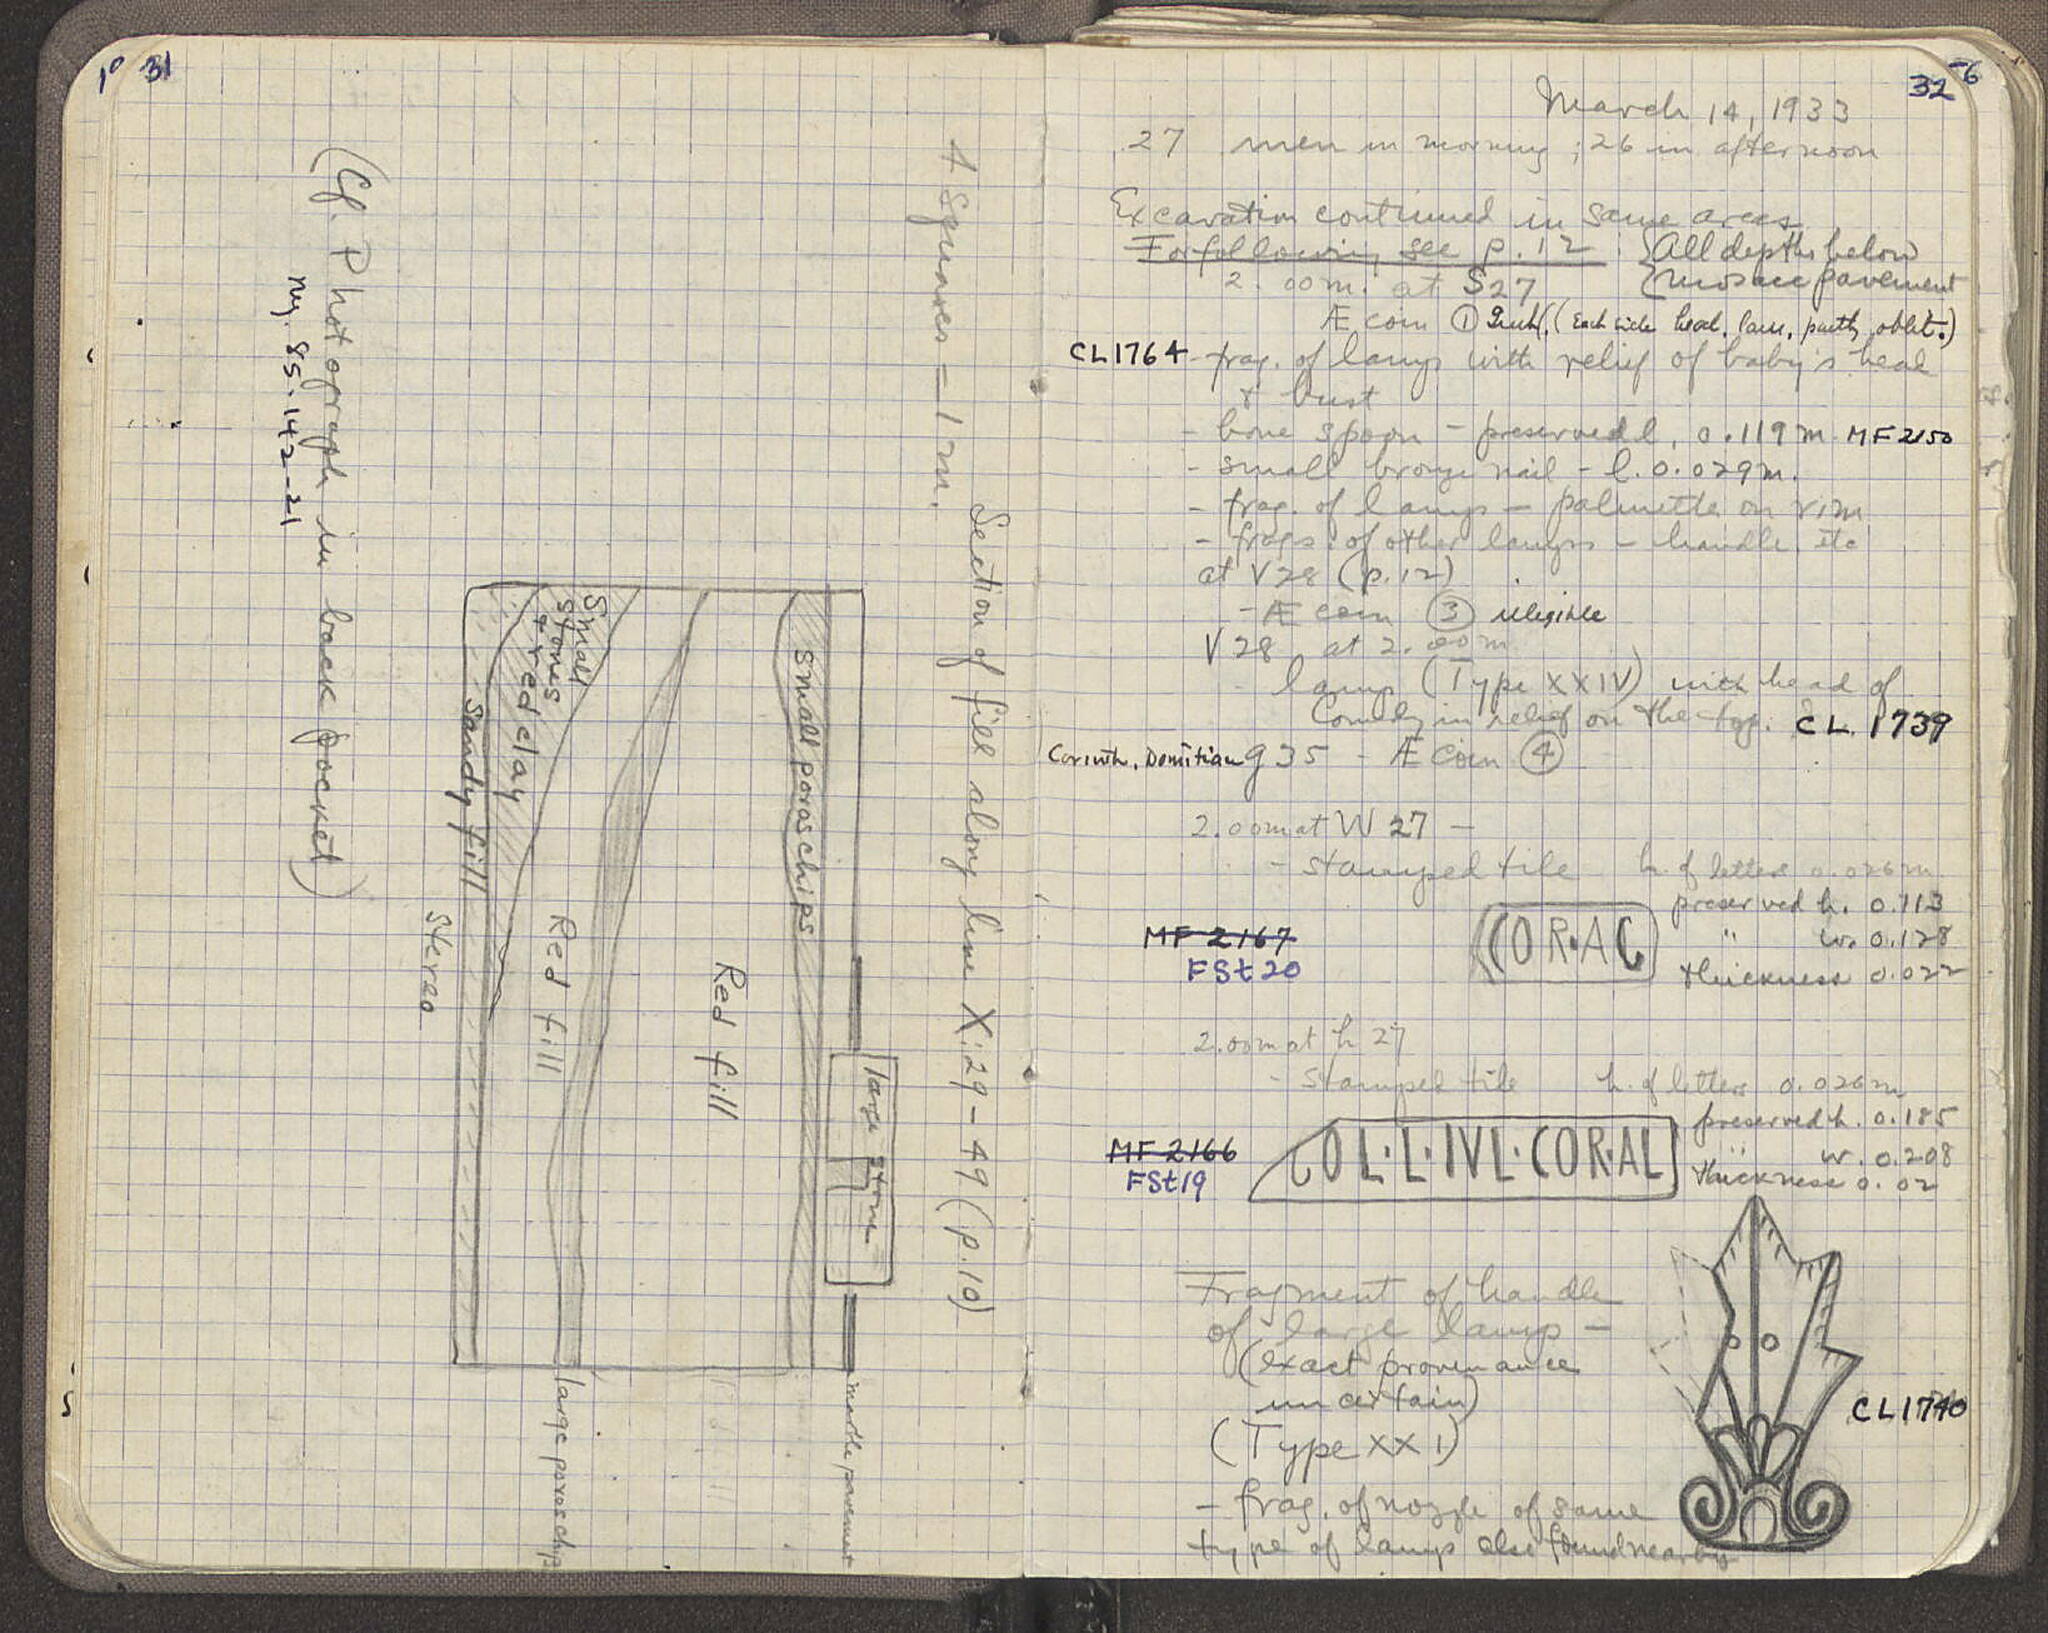 1⁰ 31
4 Squares = 1 m.
Section of fill along line X:29-49 (p.10)
large stone
marble pavement
small poros chips
Red fill
large poros chips
Red fill
Small
stones
+ red clay
Sandy fill
Stereo
(Cf. Photograph in back pocket)
neg. 85-142-21
32 -6
March 14, 1933
27 men in morning; 26 in afternoon
Excavation continued in same areas
For following see p. 12 : {All depths below
2.00 m. at S27 {mosaic pavement
Æ coin ① (Each side head. laur. partly oblit.)
CL1764 - frag. of lamp with relief of baby's head
& bust
- bone spoon - preserved l. 0.119 m. MF 2150
- small bronze nail - l. 0.029 m.
- frag. of lamp - palmette on rim
- frags. of other lamps - handle etc
at V28 (p.12)
- Æ coin ③ illegible
V28 at 2.00 m
- lamp (Type XXIV) with head of
Comedy in relief on the top. CL. 1739
Corinth. Domitian g 35 - Æ coin ④
2.00 m at W 27 -
- Stamped tile h. of letters 0.026 m.
preserved h. 0.113
MF 2167 COR·AC " w. 0.128
FSt 20 thickness 0.022
2.00 m at h 27
- Stamped tile h. of letters 0.026 m
preserved h. 0.185
MF 2166 COL·L·IVL·COR·AL " w. 0.208
FSt 19 thickness 0.02
Fragment of handle
of large lamp -
(exact provenance
uncertain)
CL1740
(Type XXI)
- frag. of nozzle of same
type of lamp also found nearby